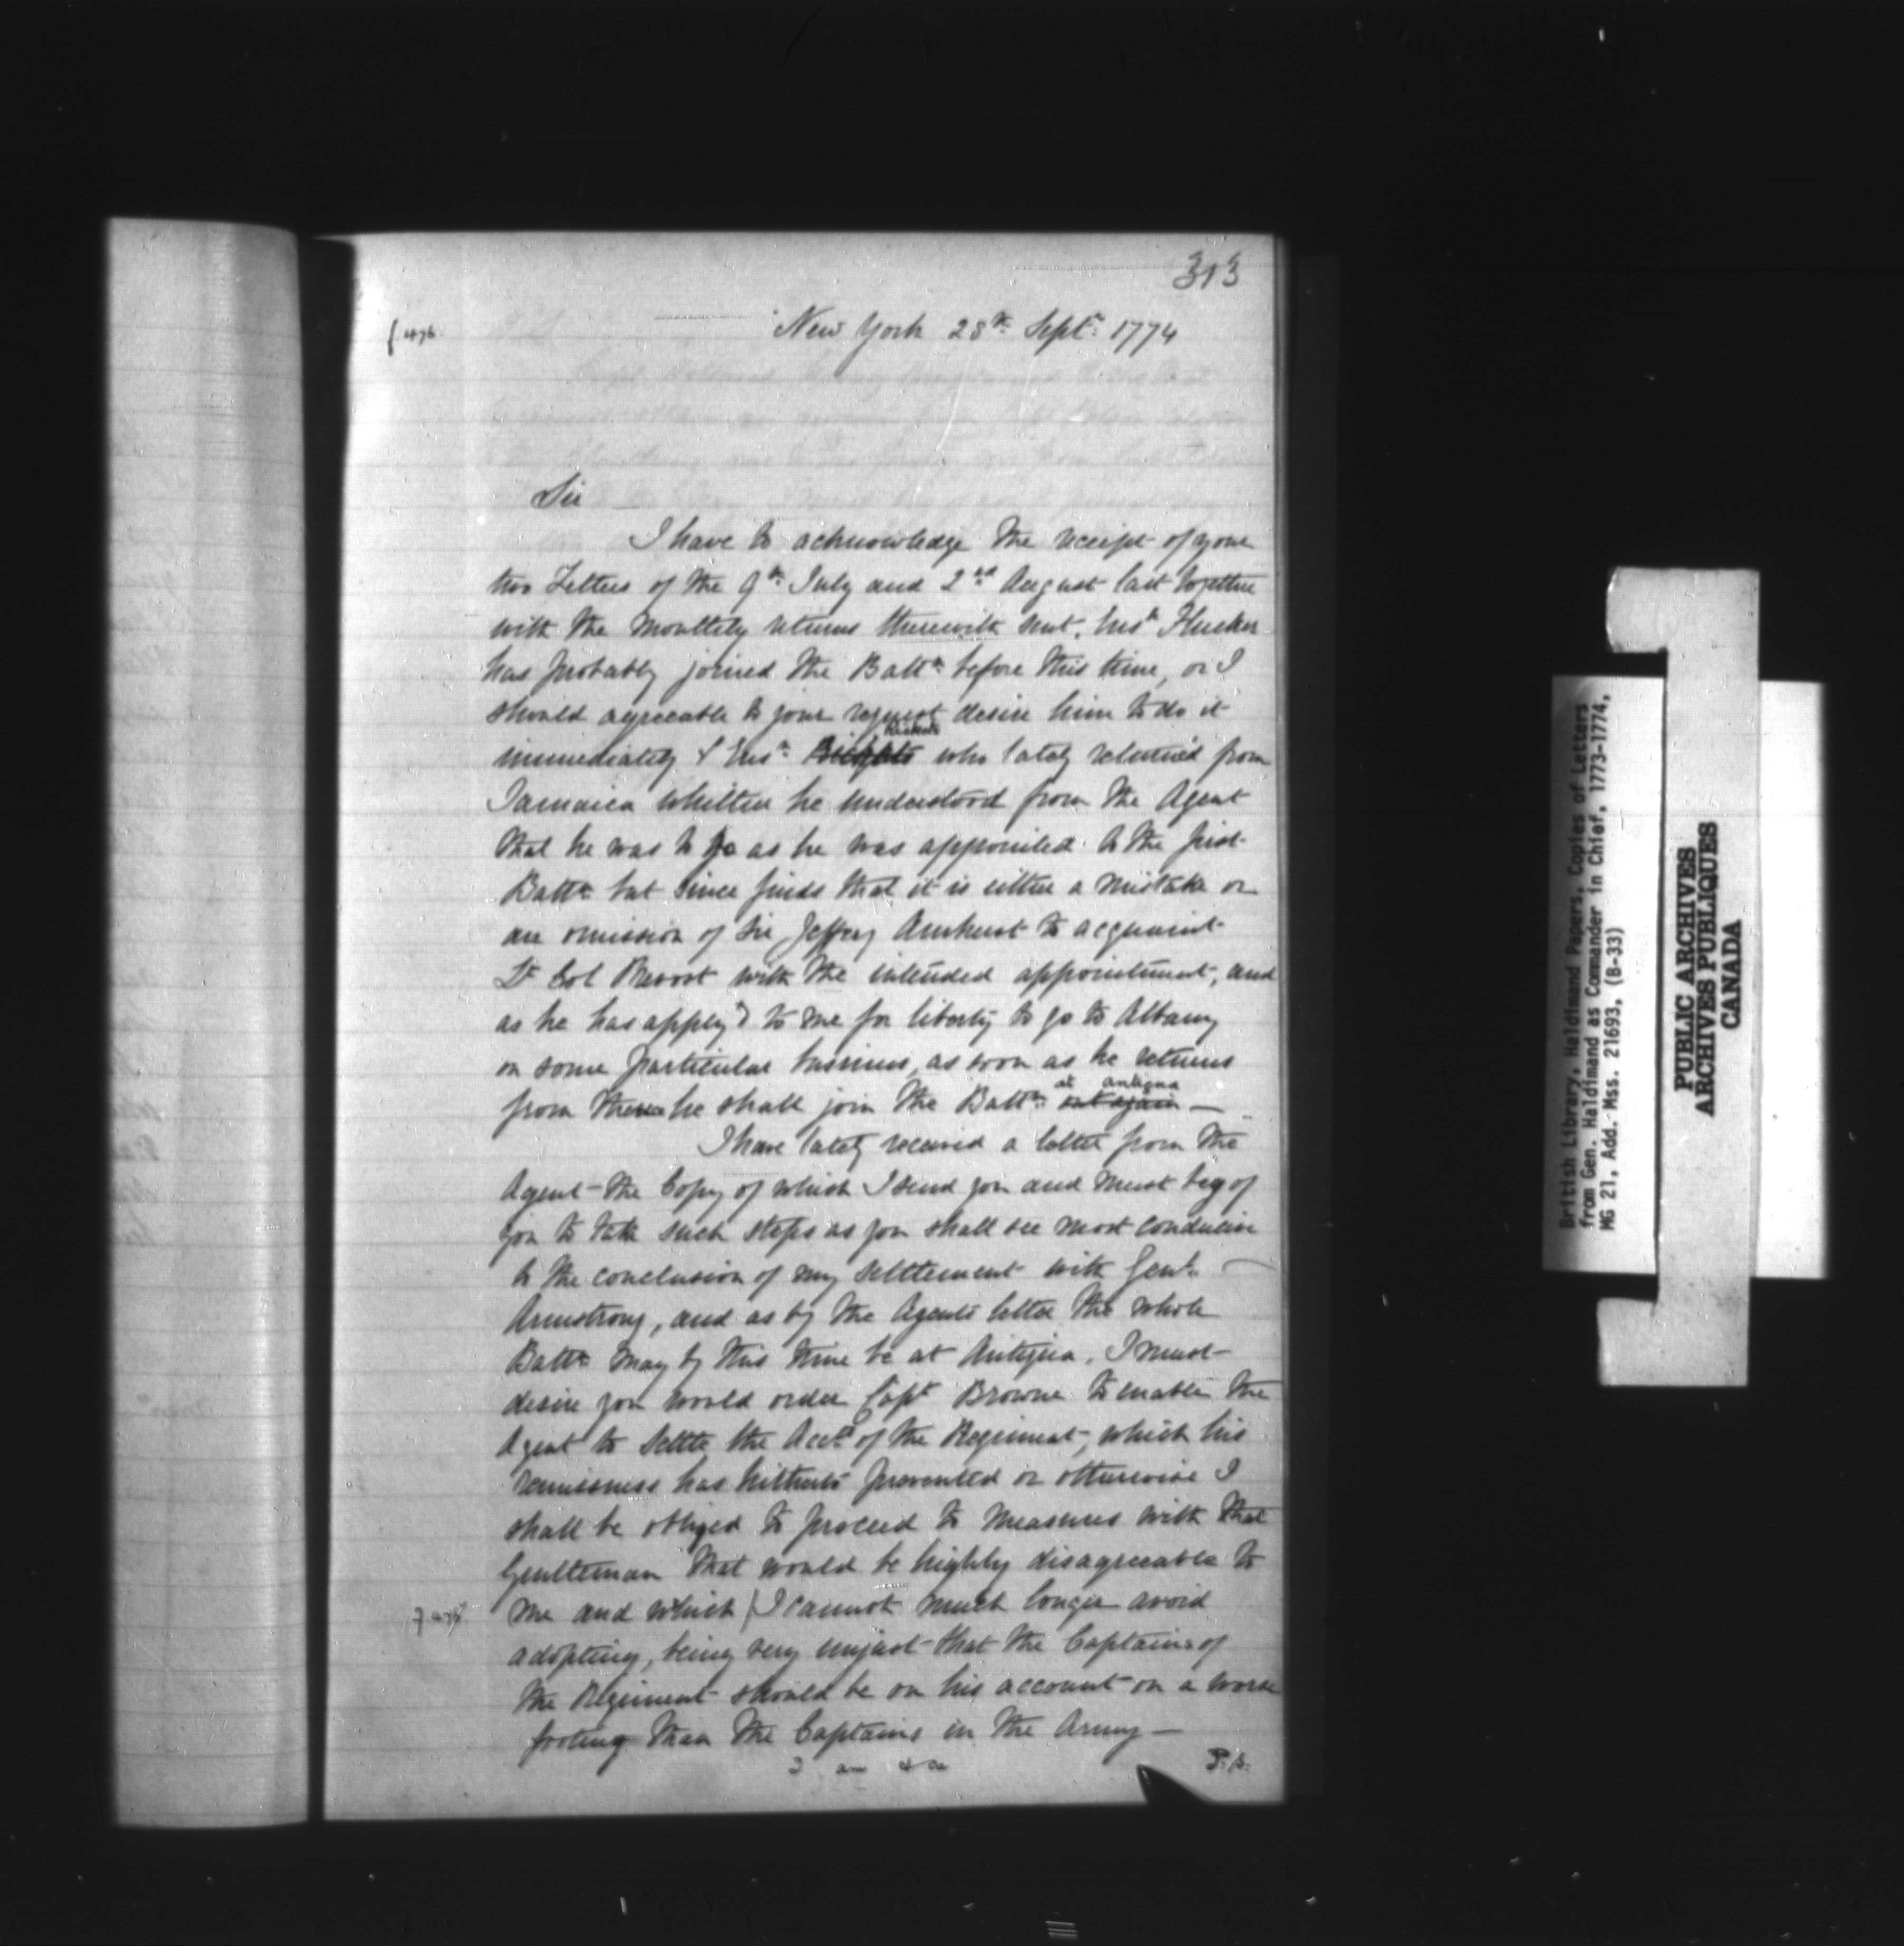 313
New York 28th Septr 1774
Sir
I have to acknowledge the receipt of your
two Letters of the 9th July and 2nd August last together
with the Monthly returns therewith sent. Ensn Flucker
has probably joined the Battn before this time, or I
should agreeable to your request desire him to do it
immediately & Ensn who lately returned from
Jamaica whither he understood from the Agent
that he was to go as he was appointed to the first
Battn but since finds that it is either a mistake or
an omission of Sir Jeffery Amherst to acquaint
Lt Col Prevost with the intended appointment, and
as he has apply'd to me for liberty to go to Albany
on some particular business, as soon as he returns
from thence he shall join the Battn at antigua
I have lately received a letter from the
Agent the Copy of which I send you and must beg of
you to take such steps as you shall see most conducive
to the conclusion of my settlement with Genl
Armstrong, and as by the Agents letter the whole
Battn may by this time be at Antigua, I must
desire you would order Capt Browne to enable the
Agent to settle the Accts of the Regiment, which his
remissness has hitherto prevented or otherwise I
shall be obliged to proceed to measures with that
Gentleman that would be highly disagreeable to
me and which I cannot much longer avoid
adopting, being very unjust that the Captains of
the Regiment should be on his account on a worse
footing than the Captains in the Army —
P.S.
British Library, Haldimand Papers, Copies of Letters
from Gen. Haldimand as Commander in Chief, 1773-1774,
MG 21, Add. Mss. 21693, (B-33)
PUBLIC ARCHIVES
ARCHIVES PUBLIQUES
CANADA